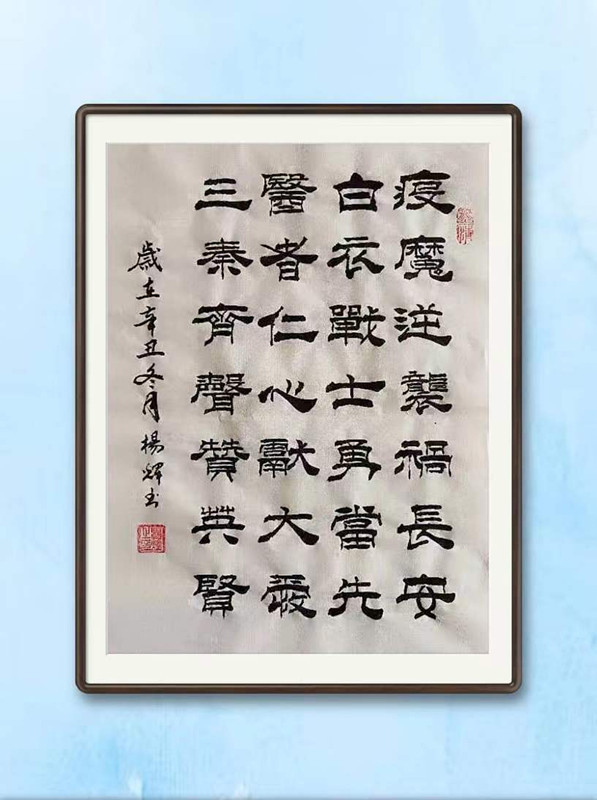 疫魔逆襲禍長安
白衣戰士勇當先
醫者仁心獻大愛
三秦齊聲贊英賢
歲在辛丑冬月楊輝书